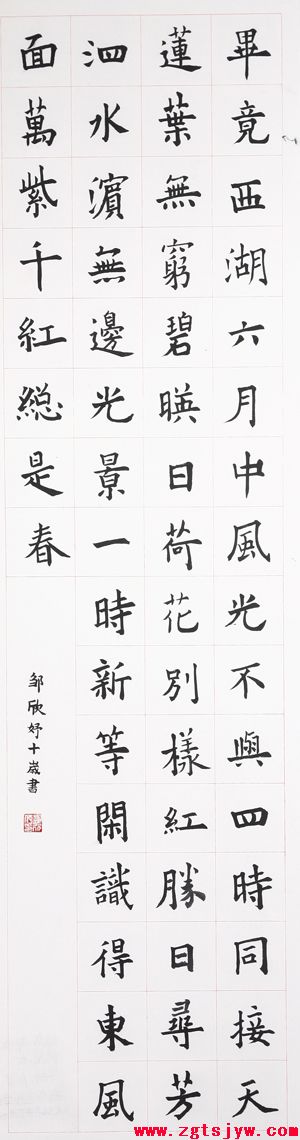 畢竟西湖六月中風光不與四時同接天
蓮葉無窮碧暎日荷花別樣紅勝日尋芳
泗水濵無邊光景一時新等閑識得東風
面萬紫千紅總是春
邹欣妤十歲書
www.zgtsjyw.com